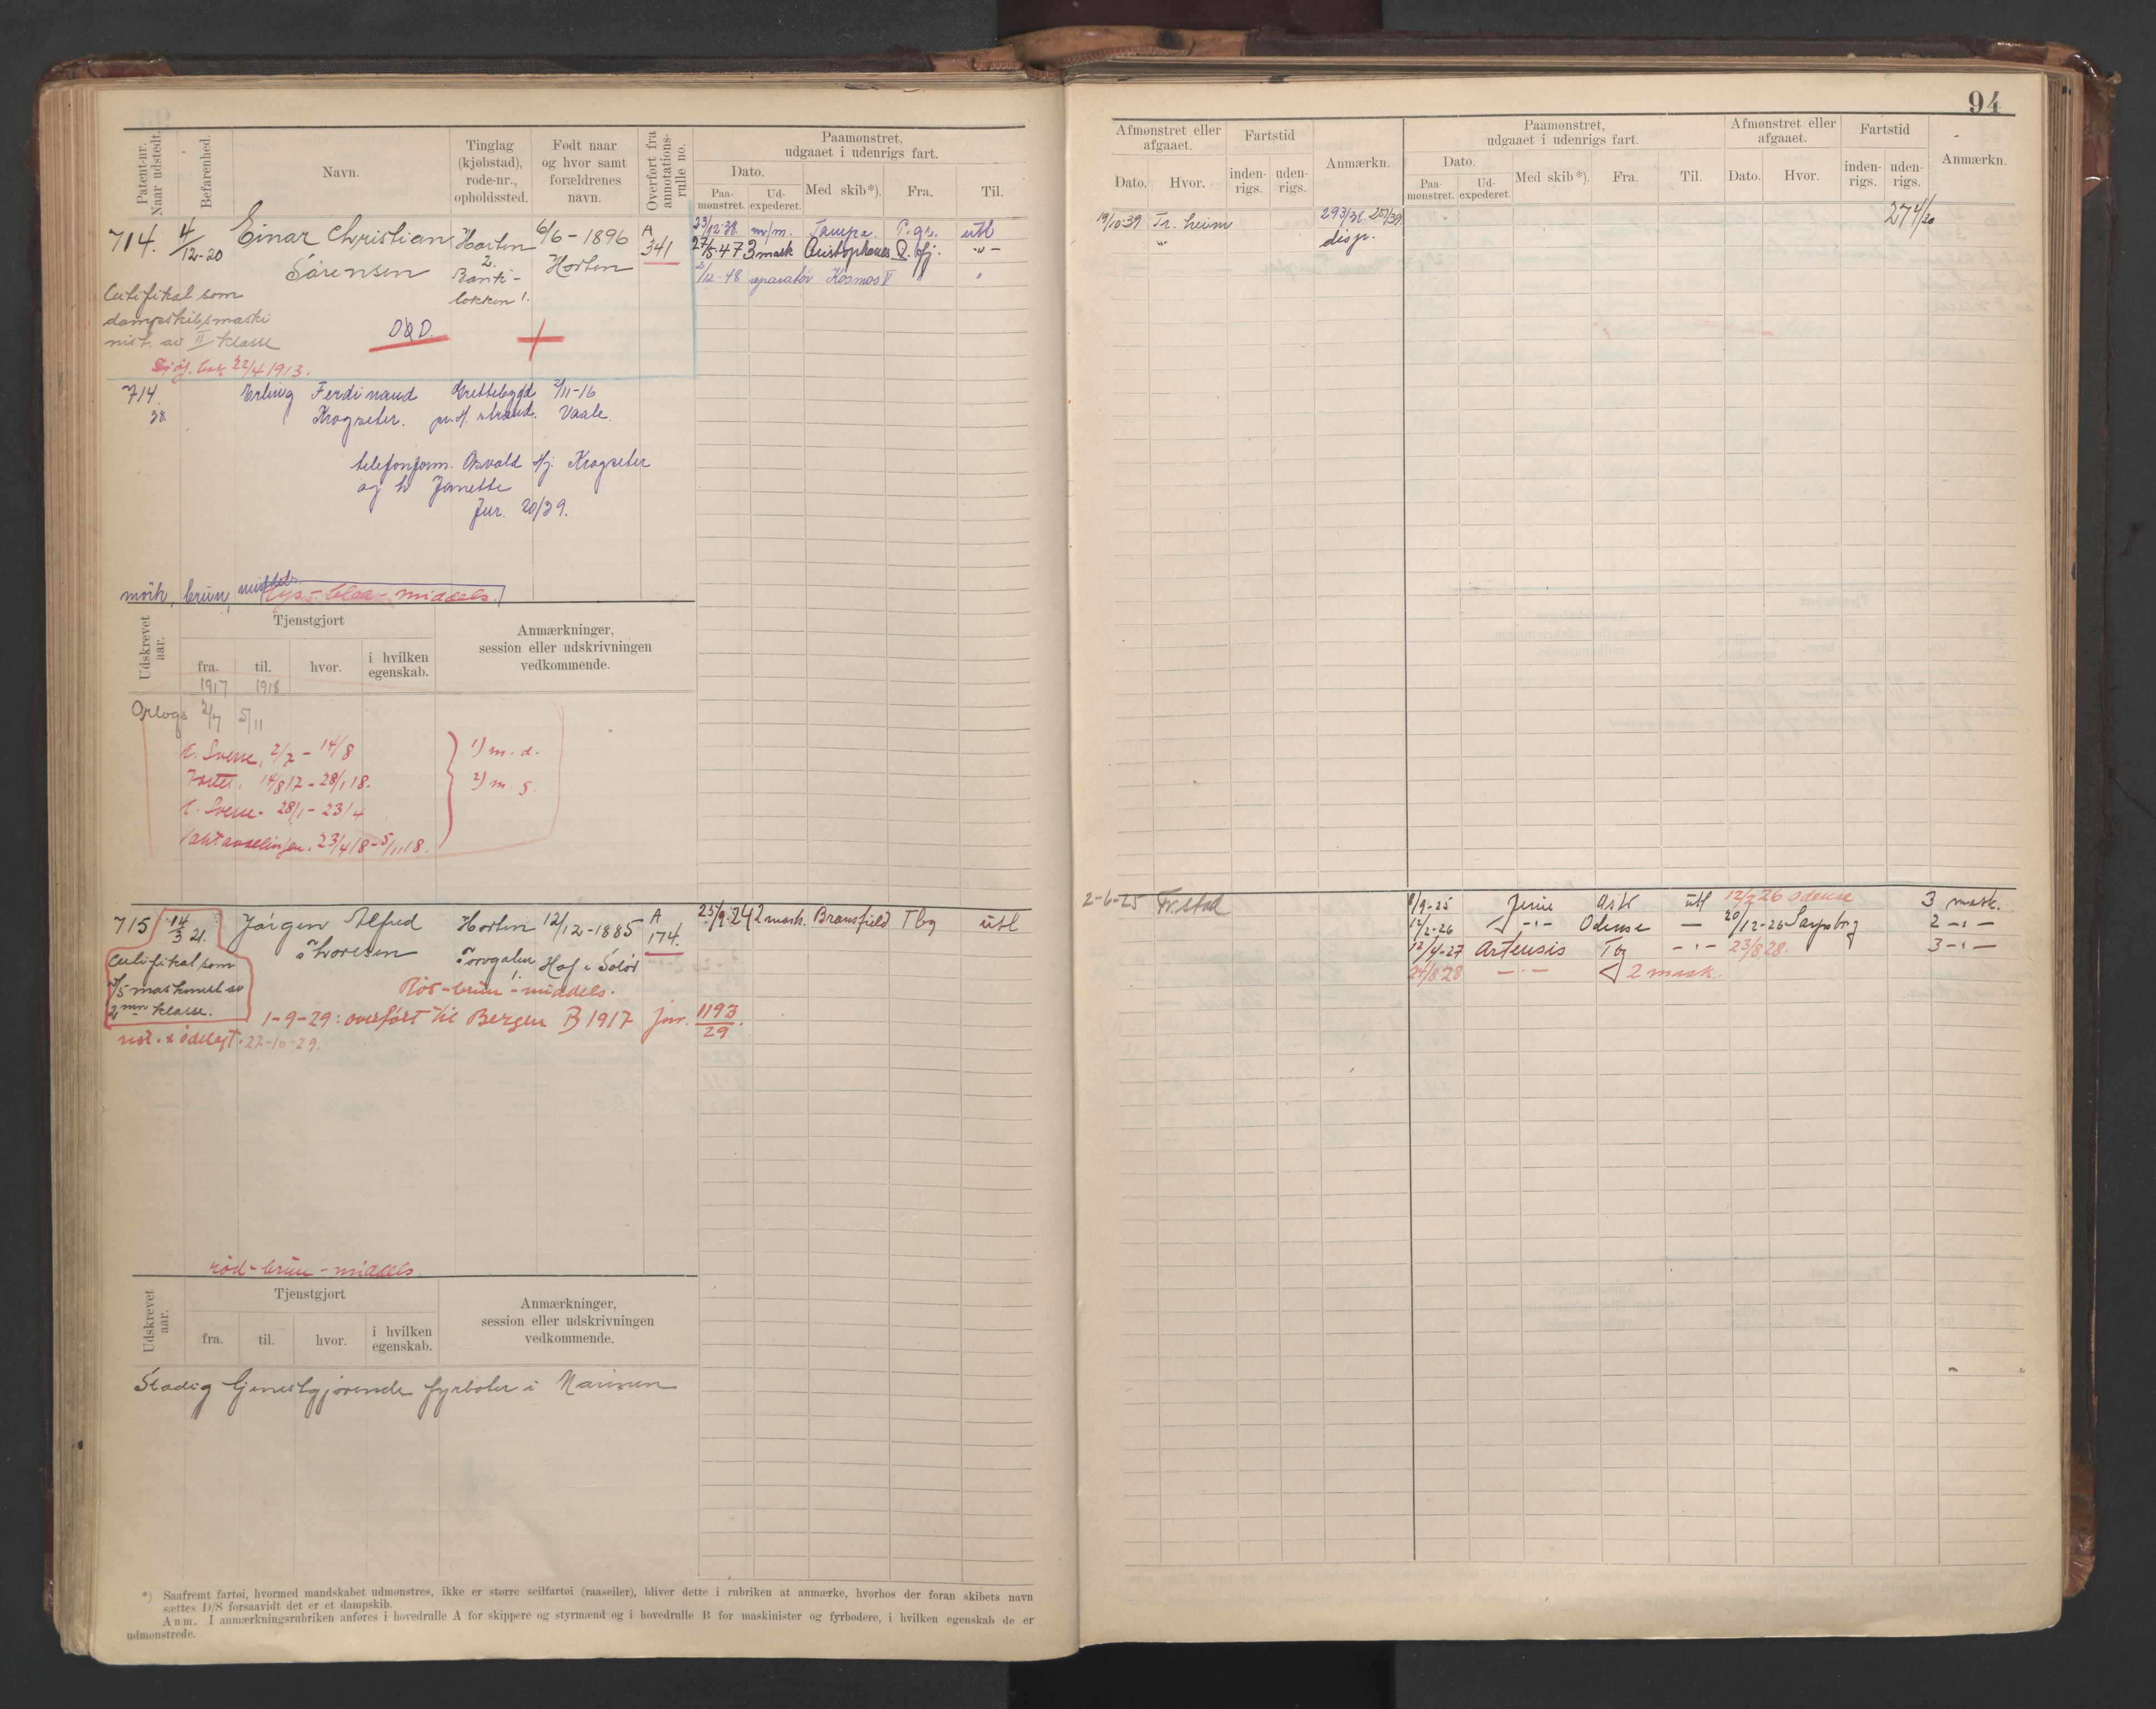 94
Patent-nr. Naar udstedt.
Befarenhed.
Navn.
Tinglag (kjøbstad), rode-nr., opholdssted.
Født naar og hvor samt forældrenes navn.
Overført fra annotations-rulle no.
Paamønstret, udgaaet i udenrigs fart.
Dato.
Paa-mønstret.
Ud-expederet.
Med skib*).
Fra.
Til.
Afmønstret eller afgaaet.
Dato.
Hvor.
Fartstid
inden-rigs.
uden-rigs.
Anmærkn.
Paamønstret, udgaaet i udenrigs fart.
Dato.
Paa-mønstret.
Ud-expederet.
Med skib*).
Fra.
Til.
Afmønstret eller afgaaet.
Dato.
Hvor.
Fartstid
inden-rigs.
uden-rigs.
Anmærkn.
714. 4/12-20 Einar Christian Horten 6/6-1896 A
Sørensen 2. Horten 341
Bank-
løkken 1.
Certifikat som
dampskibsmaski
nist av II klasse
DØD.
Sjøf. bok 22/4 1913.
23/12-38 m/m. Tampa. utl
27/5-47 3 mask Aristophanes
2/12-48 separatør Kosmos V
19/10-39 Tr. heim
293/38. 257/39
disp.
274/30
714 Erling Ferdinand Grettebygd 2/11-16
38 Krogseter. pr. H. strand. Vaale.
telefonform. Osvald Hj. Krogseter
og h Janette
Jur. 20/39.
mörk, brun, middels
lys-blaa-middels.
Udskrevet aar.
Tjenstgjort
fra.
til.
hvor.
i hvilken egenskab.
Anmærkninger, session eller udskrivningen vedkommende.
1917 1918
Oplogs 2/7 5/11
E. Sverre, 2/7 - 14/8 1) m. d.
14/8 17 - 28/1 18. 2) m. g.
E. Sverre. 28/1 - 23/4
23/4 18 - 5/11 18.
715 14/3 21. Jörgen Alfred Horten 12/12-1885 A
Thoresen Torvgaten Hof i Solör 174.
1.
Certifikat som
maskinist av
2nn klasse.
Röd-brun-middels.
1-9-29: overfört til Bergen B 1917 jnr. 1193/29.
ödelagt. 22-10-29.
25/9-24 2 mask. Bransfield Tbg utl
2-6-25 Fr.stad
8/9-25 Ask utl 12/2 26 Odense 3 mask.
12/2-26 -"- Odense — 20/12-26 Sarpsborg 2 -"-
12/4-27 Artensis Tbg -"- 23/8 28. 3 -"-
24/8 28 -"- 2 mask.
rød-brun-middels.
Udskrevet aar.
Tjenstgjort
fra.
til.
hvor.
i hvilken egenskab.
Anmærkninger, session eller udskrivningen vedkommende.
Stadig tjenestgjørende fyrbøter i Marinen
*) Saafremt fartøi, hvormed mandskabet udmønstres, ikke er større seilfartøi (raaseiler), bliver dette i rubriken at anmærke, hvorhos der foran skibets navn
sættes D/S forsaavidt det er et dampskib.
Anm. I anmærkningsrubriken anføres i hovedrulle A for skippere og styrmænd og i hovedrulle B for maskinister og fyrbødere, i hvilken egenskab de er
udmønstrede.